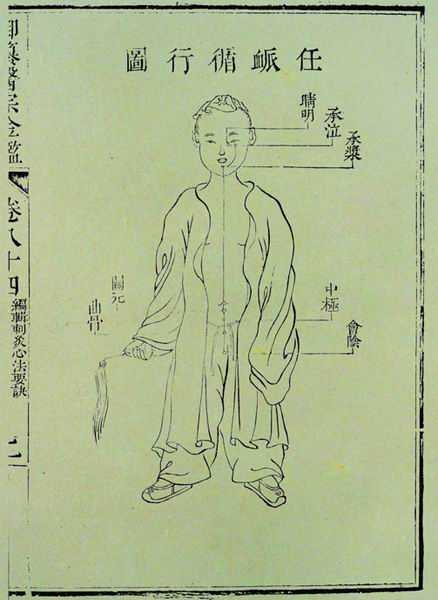 任衇循行圖
睛明
承泣
承漿
中極
會陰
關元
曲骨
御纂醫宗金鑑
卷八十四
編輯刺灸心法要訣